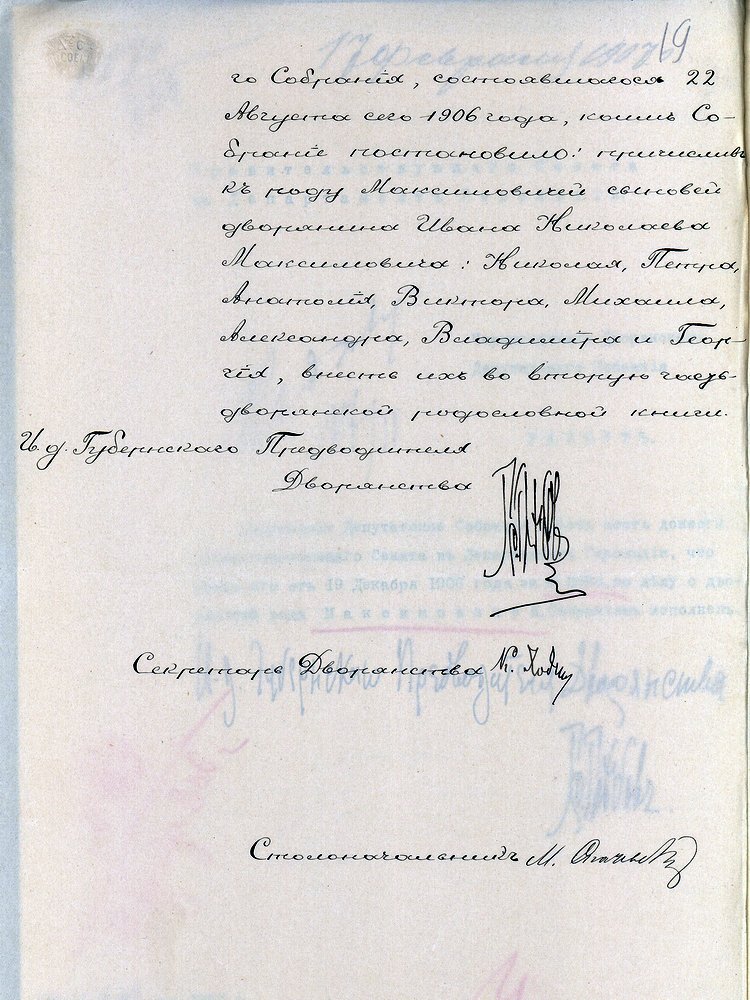 19
го Собранія, состоявшагося 22
Августа сего 1906 года, коимъ Со-
браніе постановило: причисливъ
къ роду Максимовичей сыновей
дворянина Ивана Николаева
Максимовича: Николая, Петра,
Анатолія, Виктора, Михаила,
Александра, Владиміра и Геор-
гія, внесть ихъ во вторую часть
дворянской родословной книги.
И. д. Губернскаго Предводителя
Дворянства
Секретарь Дворянства
Столоначальникъ М.